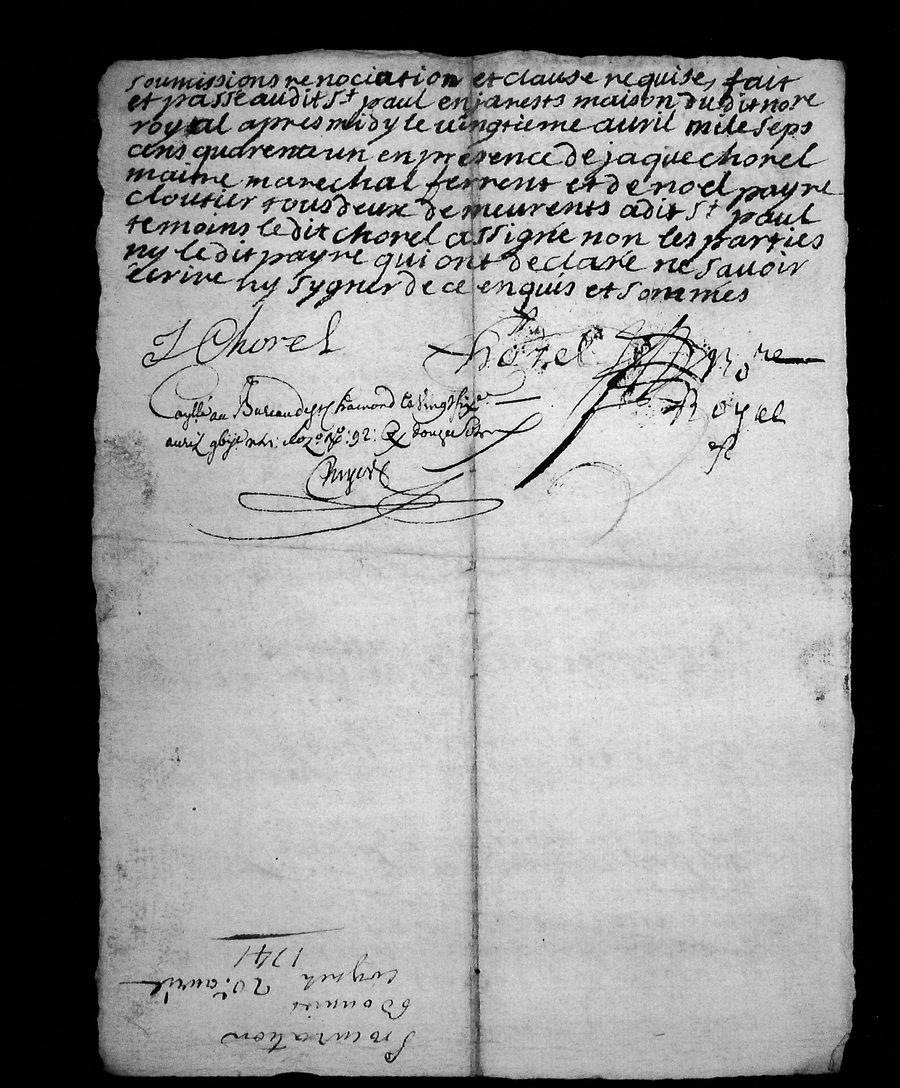 soumissions renociation et clause requise, fait
et passe audit St paul en jarests maison du dit nore
royal apres midy le vingtieme avril mile seps
cens quarenta un en presence de jaque chorel
maitre marechal ferrent et de noel payre
cloutier tous deux demeurents adit St paul
temoins le dit chorel a ssigne non les parties
ny le dit payre qui ont declare ne savoir
ecrire ny sygner de ce enquis et sommes
J Chorel
Chorel nore
Royel
au Bureau de St chamond le vingt six
avril douze
Procuration
20e avril
1741